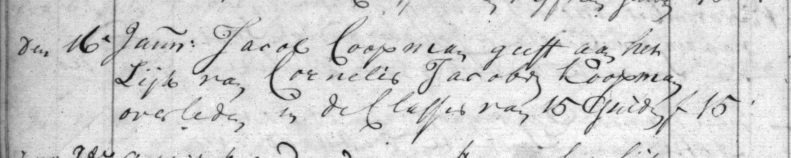 den 16e Jann: Jacob Coopman geeft aan het
Lijk van Cornelis Jacobsz Koopman
overleden in de Classis van 15 Gulden f 15